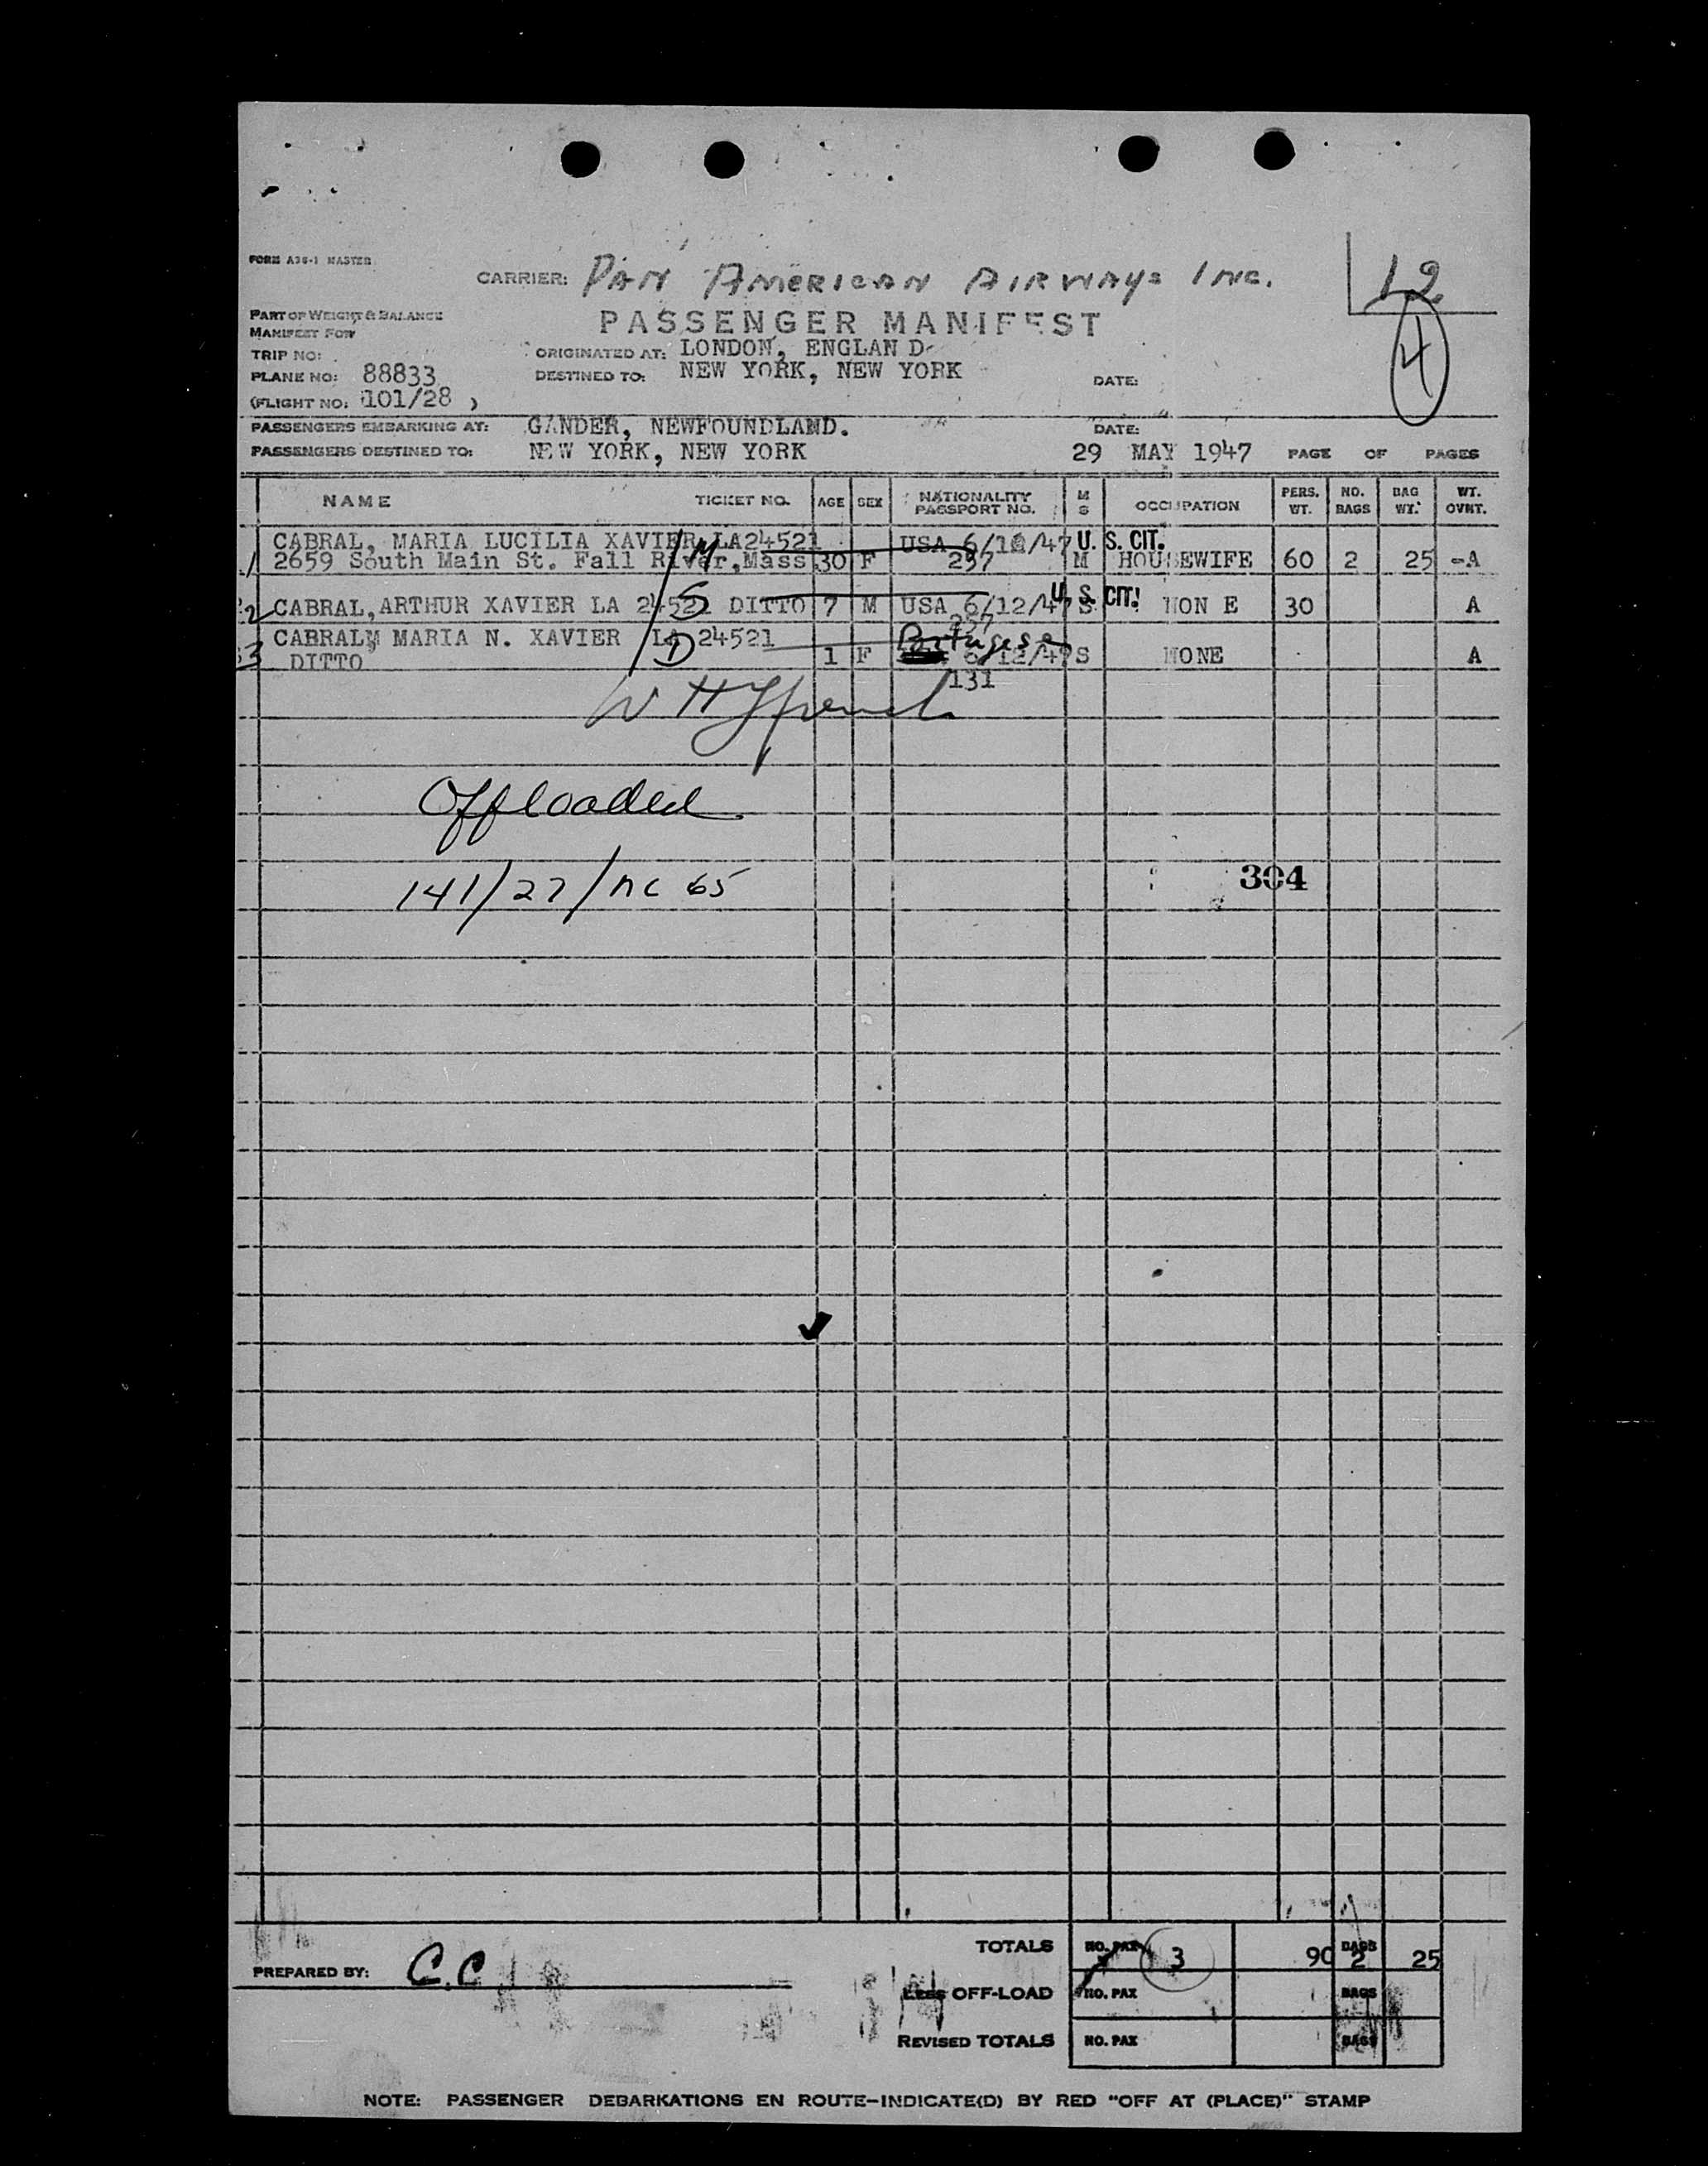 FORM A36-1 MASTER
CARRIER: PAN AMERICAN AIRWAYS INC.
12
4
PART OF WEIGHT & BALANCE
MANIFEST FOR
PASSENGER MANIFEST
TRIP NO:
ORIGINATED AT: LONDON, ENGLAN D
PLANE NO: 88833
DESTINED TO: NEW YORK, NEW YORK
DATE:
(FLIGHT NO: 101/28 )
PASSENGERS EMBARKING AT: GANDER, NEWFOUNDLAND.
DATE:
PASSENGERS DESTINED TO: NEW YORK, NEW YORK
29 MAY 1947 PAGE OF PAGES
NAME TICKET NO. AGE SEX NATIONALITY PASSPORT NO. M S OCCUPATION PERS. WT. NO. BAGS BAG WT. WT. OVNT.
CABRAL, MARIA LUCILIA XAVIER LA24521 USA U. S. CIT.
1 2659 South Main St. Fall River,Mass 30 F 257 M HOUSEWIFE 60 2 25 -A
M
2 CABRAL,ARTHUR XAVIER LA 24521 DITTO 7 M USA 6/12/47 S U. S. CIT. NON E 30 A
S
257
CABRAL, MARIA N. XAVIER LA 24521 Portugese
3 DITTO D 1 F 6/12/47 S NONE A
131
Offloaded
141/27/NC 65
304
TOTALS NO. PAX 3 90 BAGS 2 25
PREPARED BY: C.C
LESS OFF-LOAD NO. PAX BAGS
REVISED TOTALS NO. PAX BAGS
NOTE: PASSENGER DEBARKATIONS EN ROUTE-INDICATE(D) BY RED "OFF AT (PLACE)" STAMP